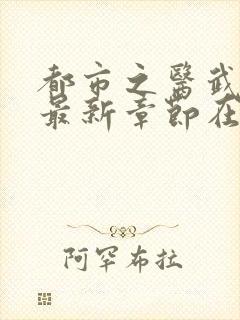 都市之醫武
最新章節在
阿罕布拉